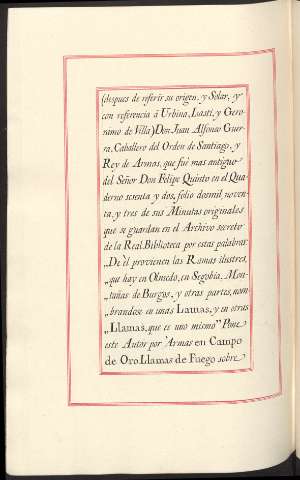 (despues de referir su origen, y Solar, y
con referencia á Urbina, Lasti, y Gero-
nimo de Villa) Don Juan Alfonso Guer-
ra, Caballero del Orden de Santiago, y
Rey de Armas, que fué mas antiguo
del Señor Don Felipe Quinto en el Qua
derno sesenta y dos, folio dosmil, noven
ta, y tres de sus Minutas originales
que se guardan en el Archivo secreto
de la Real Biblioteca por estas palabras
„De él provienen las Ramas ilustres,
„que hay en Olmedo, en Segobia, Mon-
„tañas de Burgos, y otras partes, nom
„brandose en unas Lamas, y en otras
„Llamas, que es uno mismo" Pone
este Autor por Armas en Campo
de Oro Llamas de Fuego sobre